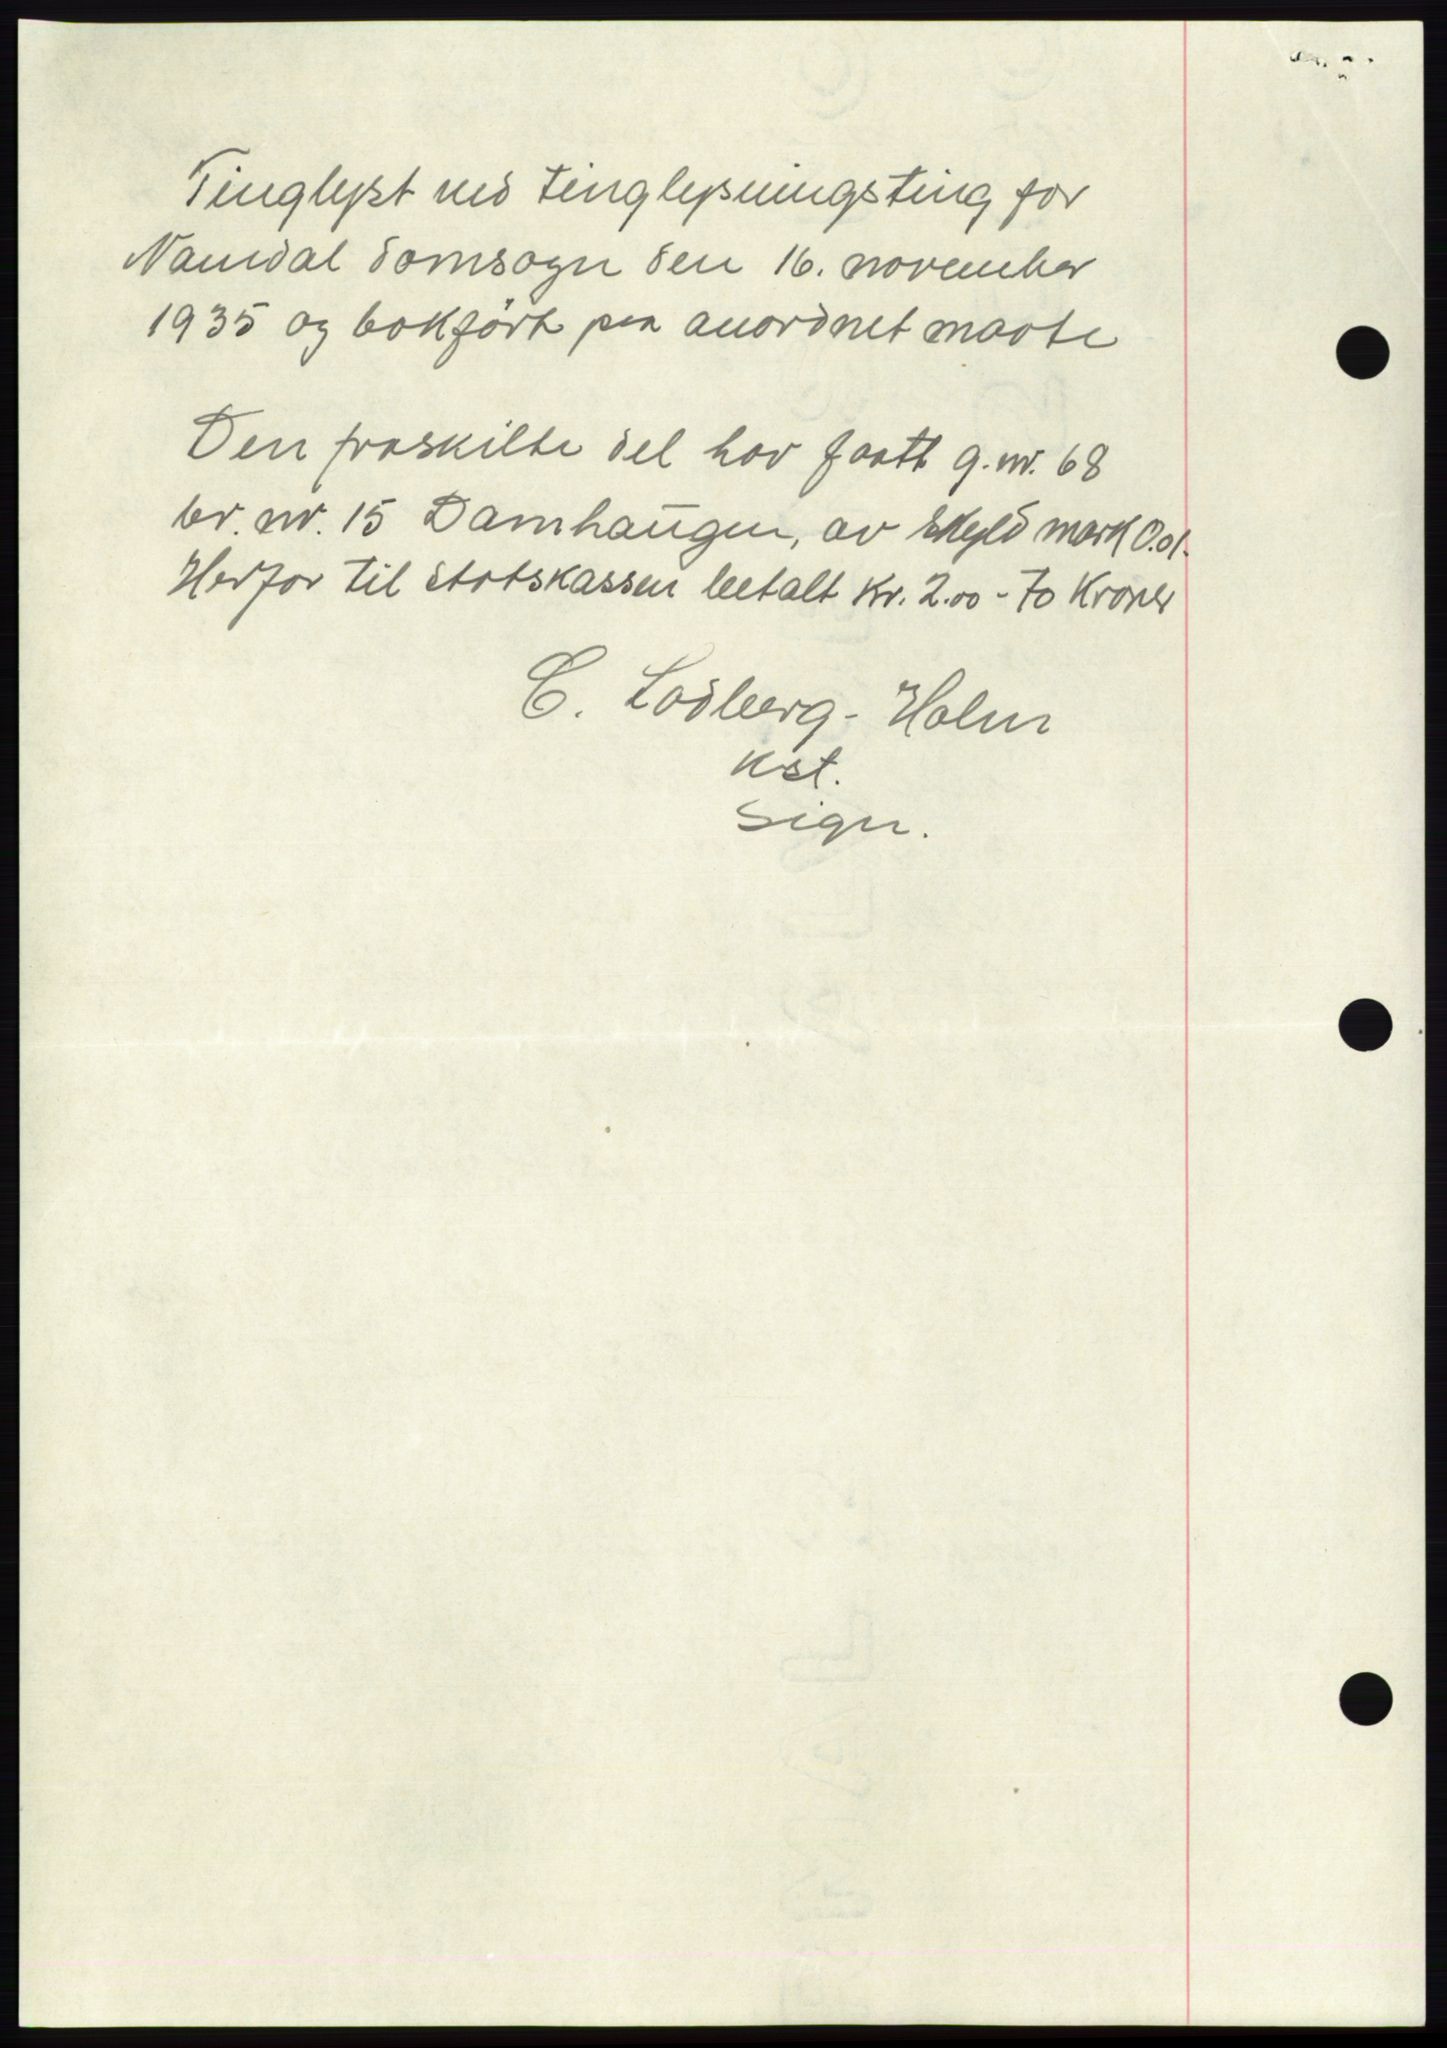 Tinglyst ved tinglysningsting for
Namdal domsogn den 16. november
1935 og bokført paa anordnet maate
Den fraskilte del har faatt g. nr. 68
br. nr. 15 Damhaugen, av skyld mark 0.01.
Herfor til statskassen betalt kr. 2.00 - To Kroner
C. Lodberg - Holm
Kst.
Sign.